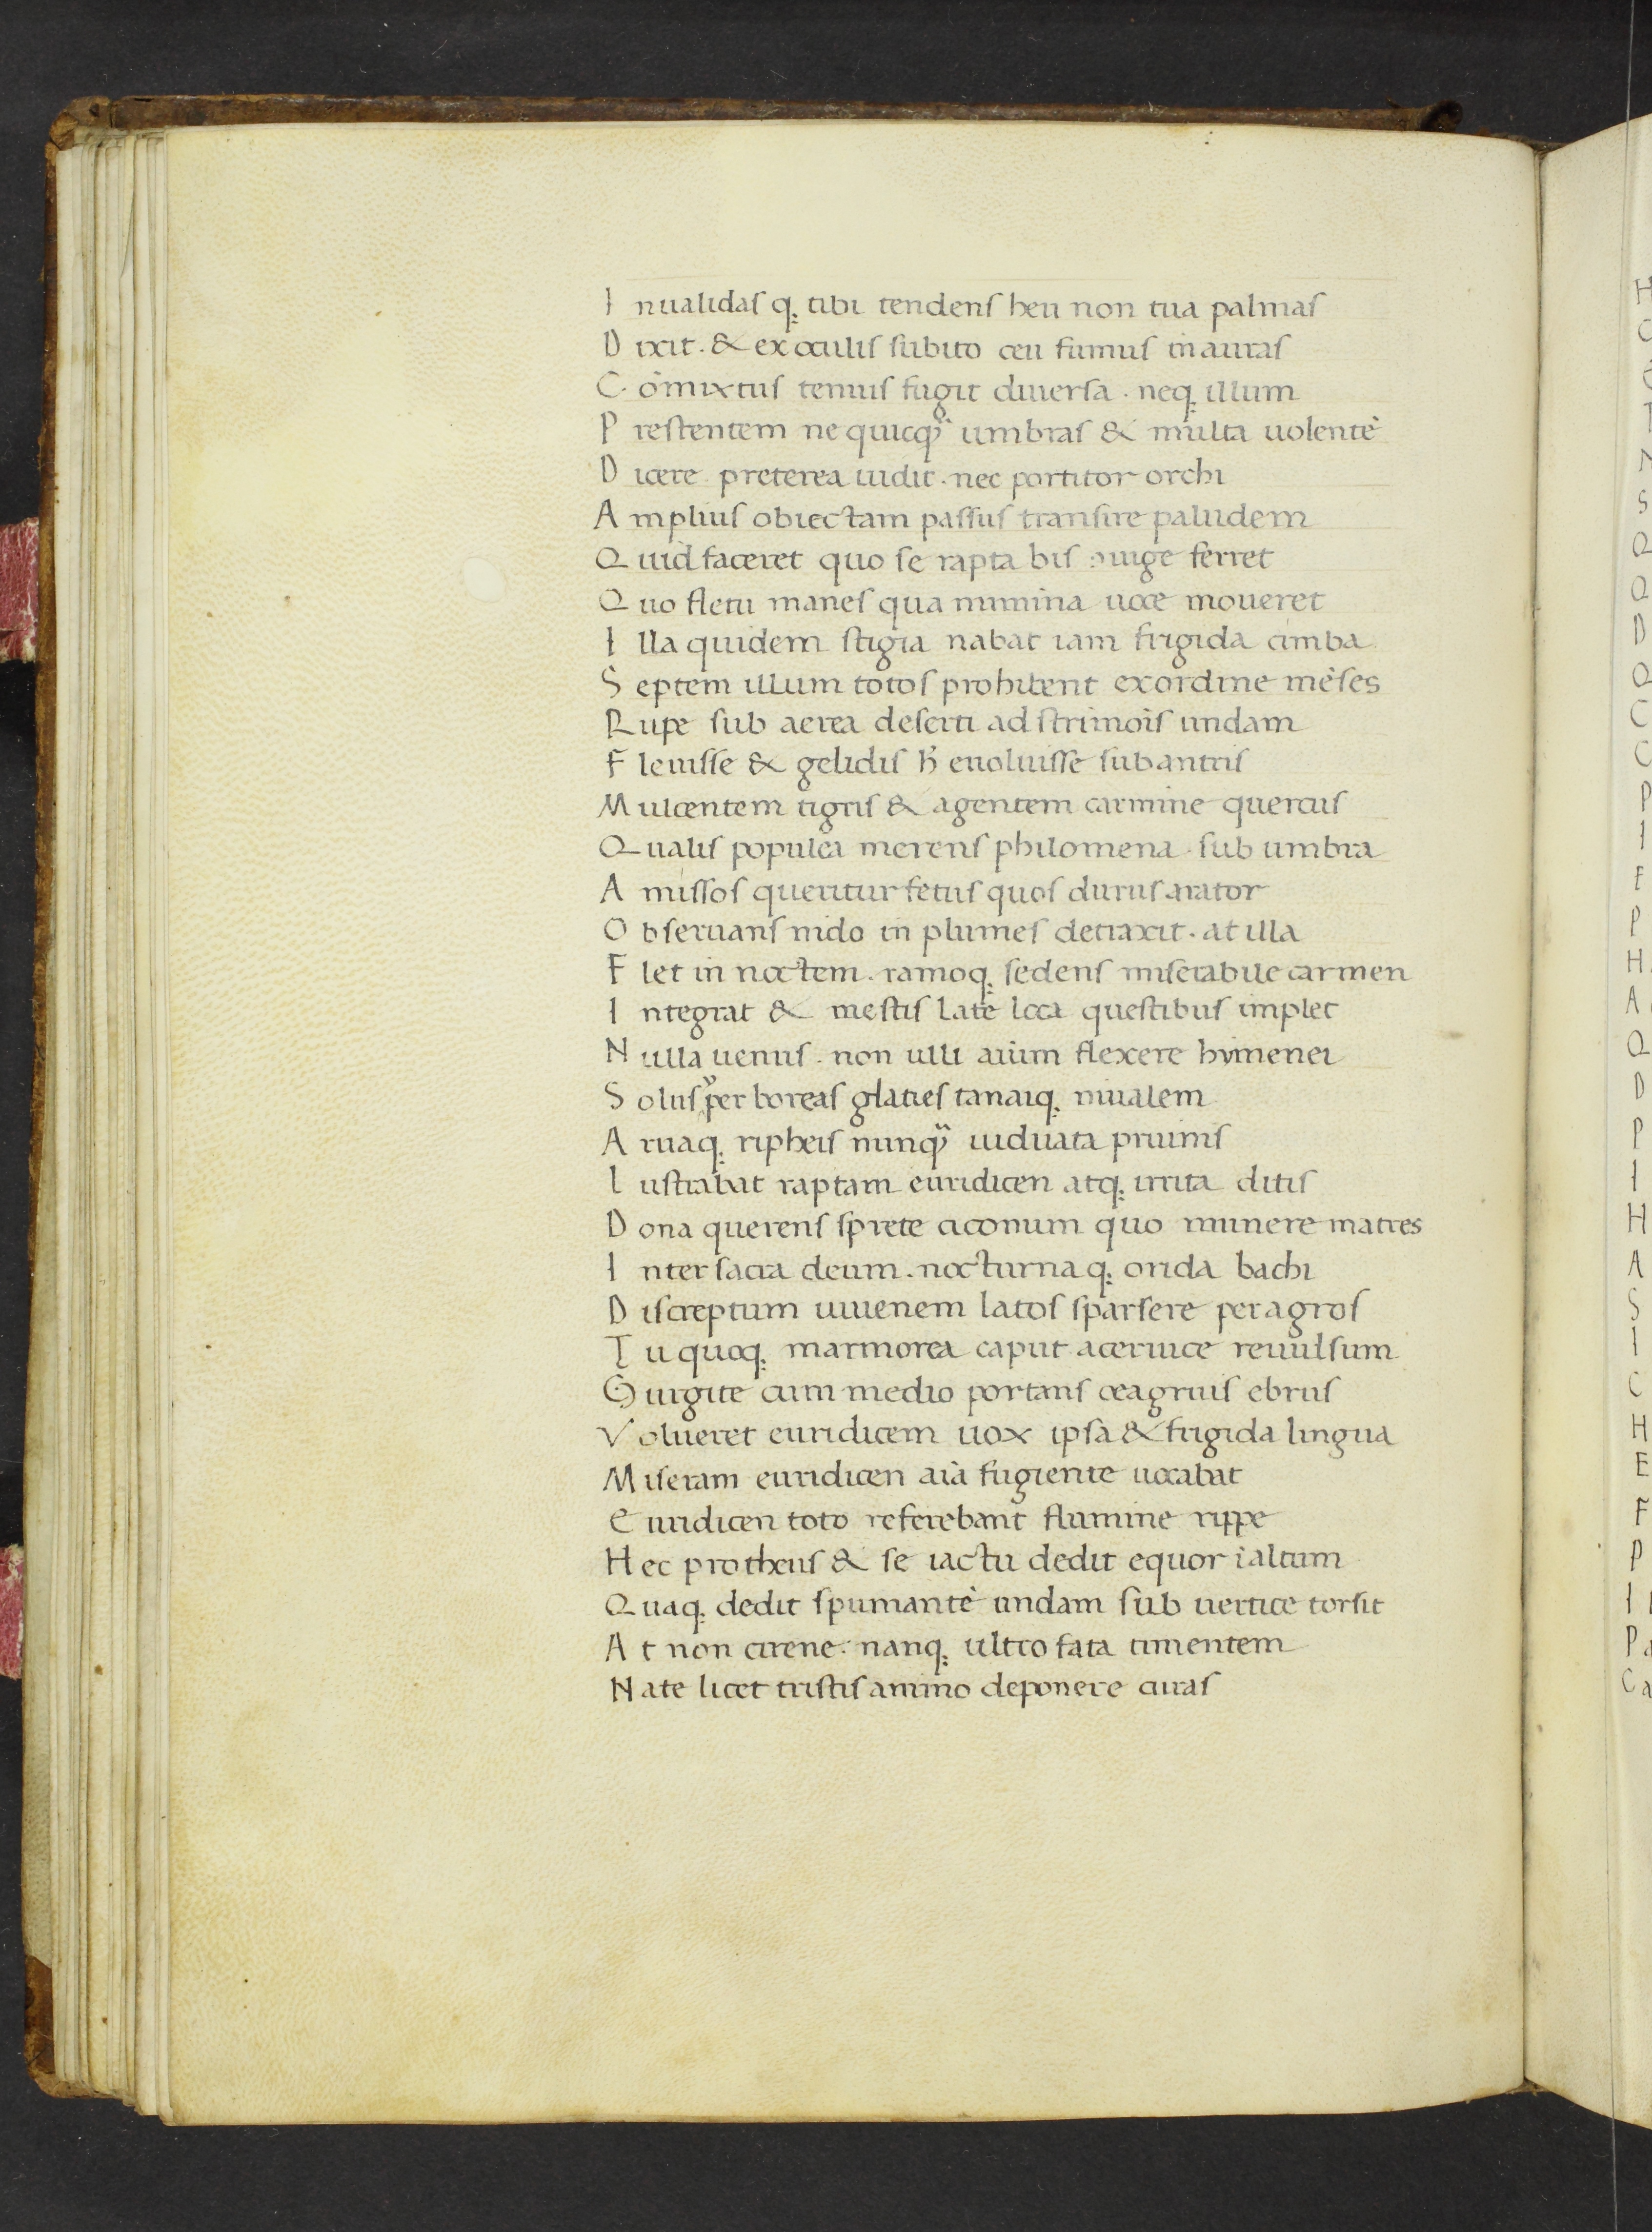 I nualidas q; tibi tendens heu non tua palmas
D ixit · & ex oculis subito ceu fumus in auras
C ōmixtus tenuis fugit diuersa · neq; illum
P restentem ne quicq̃ umbras & multa uolentē
D icere preterea uidit · nec portitor orchi
A mplius obiectam passus transire paludem
Q uid faceret quo se rapta bis ferret
Q uo fletu manes qua numina uoce moueret
I lla quidem stigia nabat iam frigida cimba
S eptem illum totos prohibent ex ordine mēses
R upe sub aerea deserti ad strimoīs undam
F leuisse & gelidis h̄ euoluisse sub antris
M ulcentem tigris & agentem carmine quercus
Q ualis populea merens philomena sub umbra
A missos queritur fetus quos durus arator
O bseruans nido in plumes detraxit · at illa
F let in noctem · ramoq; sedens miserabile carmen
I ntegrat & mestis late loca questibus implet
N ulla uenus · non ulli aīum flexere hymenei
S olus ẏper boreas glacies tanaiq; niualem
A ruaq; ripheis nunq̃ uiduata pruinis
L ustrabat raptam euridicen atq; irrita ditis
D ona querens sprete ciconum quo munere matres
I nter sacra deum · nocturna q; orida bachi
D iscreptum iuuenem latos sparsere per agros
T u quoq; marmorea caput a ceruice reuulsum
G urgite cum medio portans oeagrius ebrus
V olueret euridicem uox ipsa & frigida lingua
M iseram euridicen aīa fugiente uocabat
E uridicen toto referebant flumine rippe
H ec protheus & se iactu dedit equor ī altum
Q uaq; dedit spumantē undam sub uertice torsit
A t non cirene · nanq; ultro fata timentem
N ate licet tristis animo deponere curas